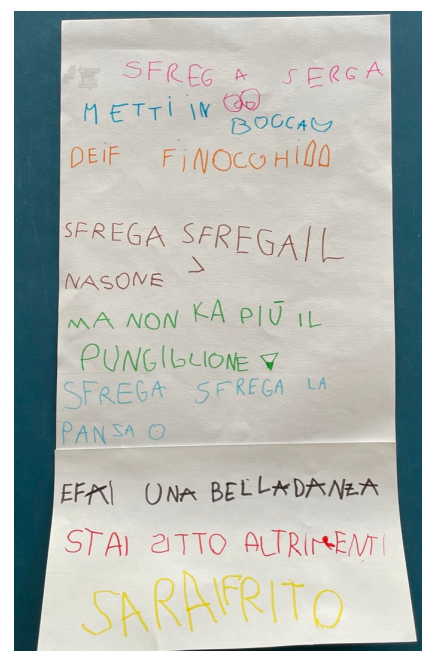 SFREGA SERGA
METTI IN BOCCA
DEIF FINOCCHI
SFREGA SFREGA IL
NASONE
MA NON KA PIÙ IL
PUNGIGLIONE
SFREGA SFREGA LA
PANSA
EFAI UNA BELLADANZA
STAI ZITTO ALTRIMENTI
SARAIFRITO